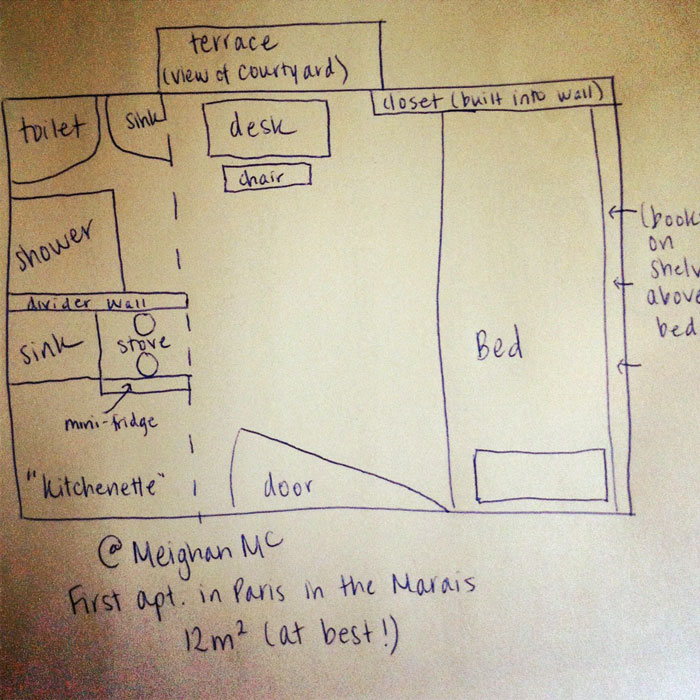 terrace
(view of courtyard)
closet (built into wall)
toilet
sink
desk
chair
shower
(book
on
shelv
above
bed
divider wall
sink
stove
Bed
mini-fridge
"kitchenette"
door
@ Meighan MC
First apt. in Paris in the Marais
12m² (at best!)